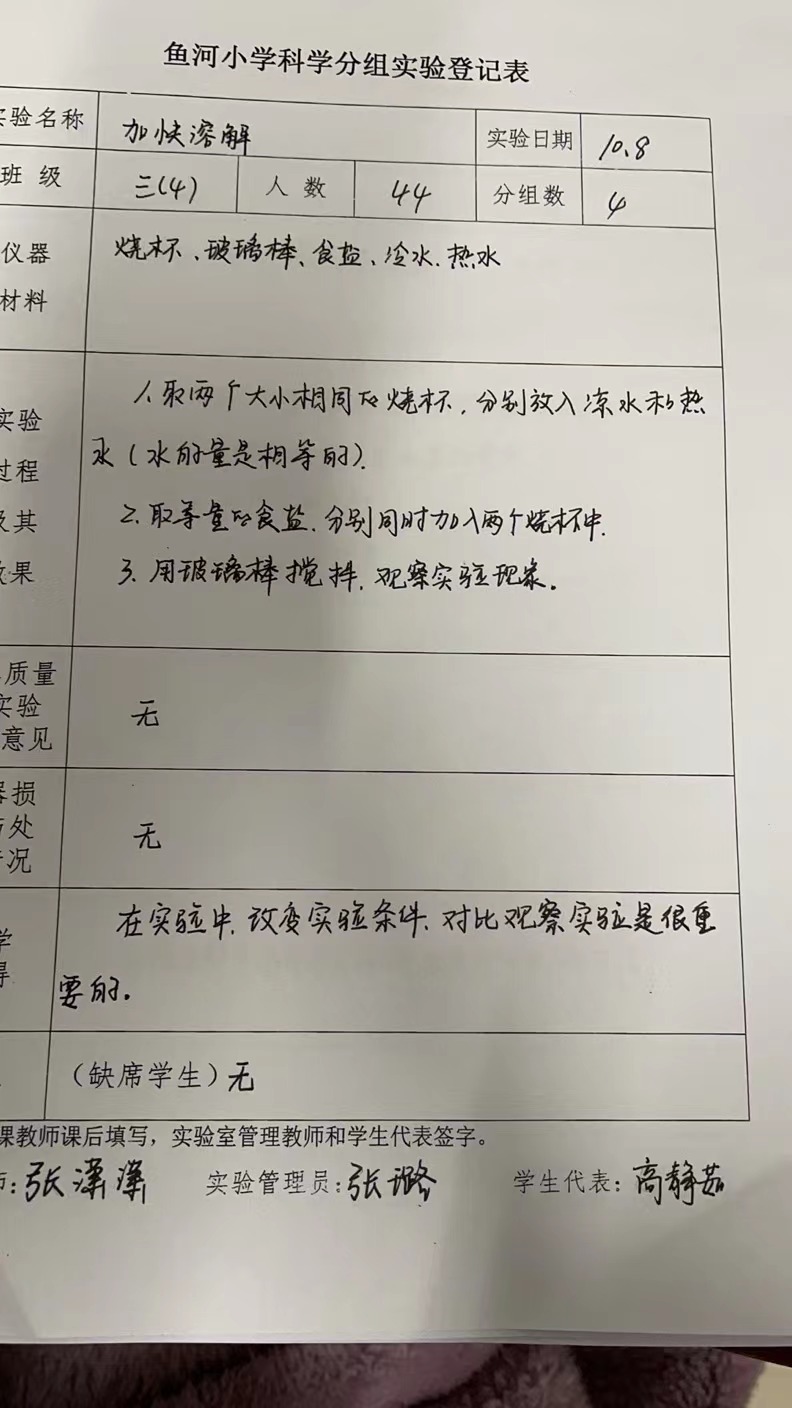 鱼河小学科学分组实验登记表
实验名称 加快溶解 实验日期 10.8
班 级 三(4) 人 数 44 分组数 4
仪器 烧杯、玻璃棒、食盐、冷水、热水
材料
1、取两个大小相同的烧杯，分别放入凉水和热
实验
水（水的量是相等的）.
过程
及其 2、取等量的食盐，分别同时加入两个烧杯中.
效果 3、用玻璃棒搅拌，观察实验现象。
质量
实验 无
意见
器损
处 无
情况
在实验中，改变实验条件，对比观察实验是很重
学
得 要的。
（缺席学生）无
课教师课后填写，实验室管理教师和学生代表签字。
师：张潇潇 实验管理员：张璐 学生代表：高静茹